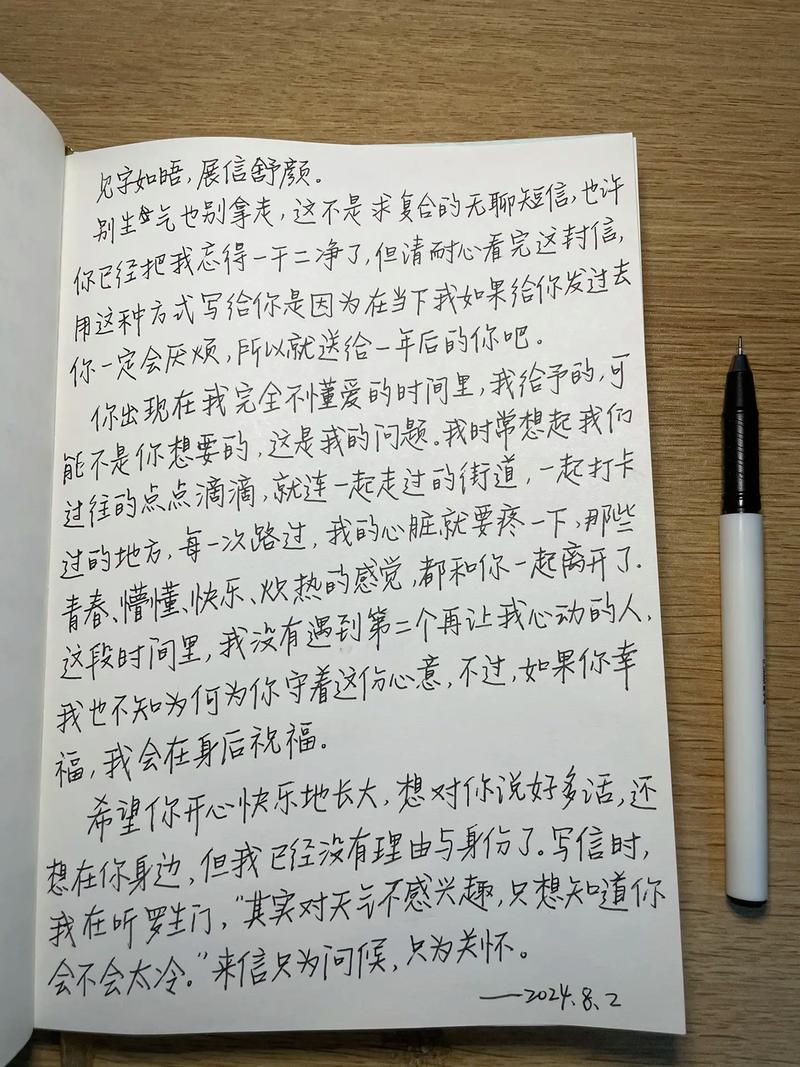 见字如晤，展信舒颜。
别生气也别拿走，这不是求复合的无聊短信，也许
你已经把我忘得一干二净了，但请耐心看完这封信，
用这种方式写给你是因为在当下我如果给你发过去
你一定会厌烦，所以就送给一年后的你吧。
你出现在我完全不懂爱的时间里，我给予的，可
能不是你想要的，这是我的问题。我时常想起我们
过往的点点滴滴，就连一起走过的街道，一起打卡
过的地方，每一次路过，我的心脏就要疼一下，那些
青春、懵懂、快乐、炽热的感觉，都和你一起离开了.
这段时间里，我没有遇到第二个再让我心动的人，
我也不知为何为你守着这份心意，不过，如果你幸
福，我会在身后祝福。
希望你开心快乐地长大，想对你说好多话，还
想在你身边，但我已经没有理由与身份了。写信时，
我在听罗生门，“其实对天气不感兴趣，只想知道你
会不会太冷。”来信只为问候，只为关怀。
——2024.8.2